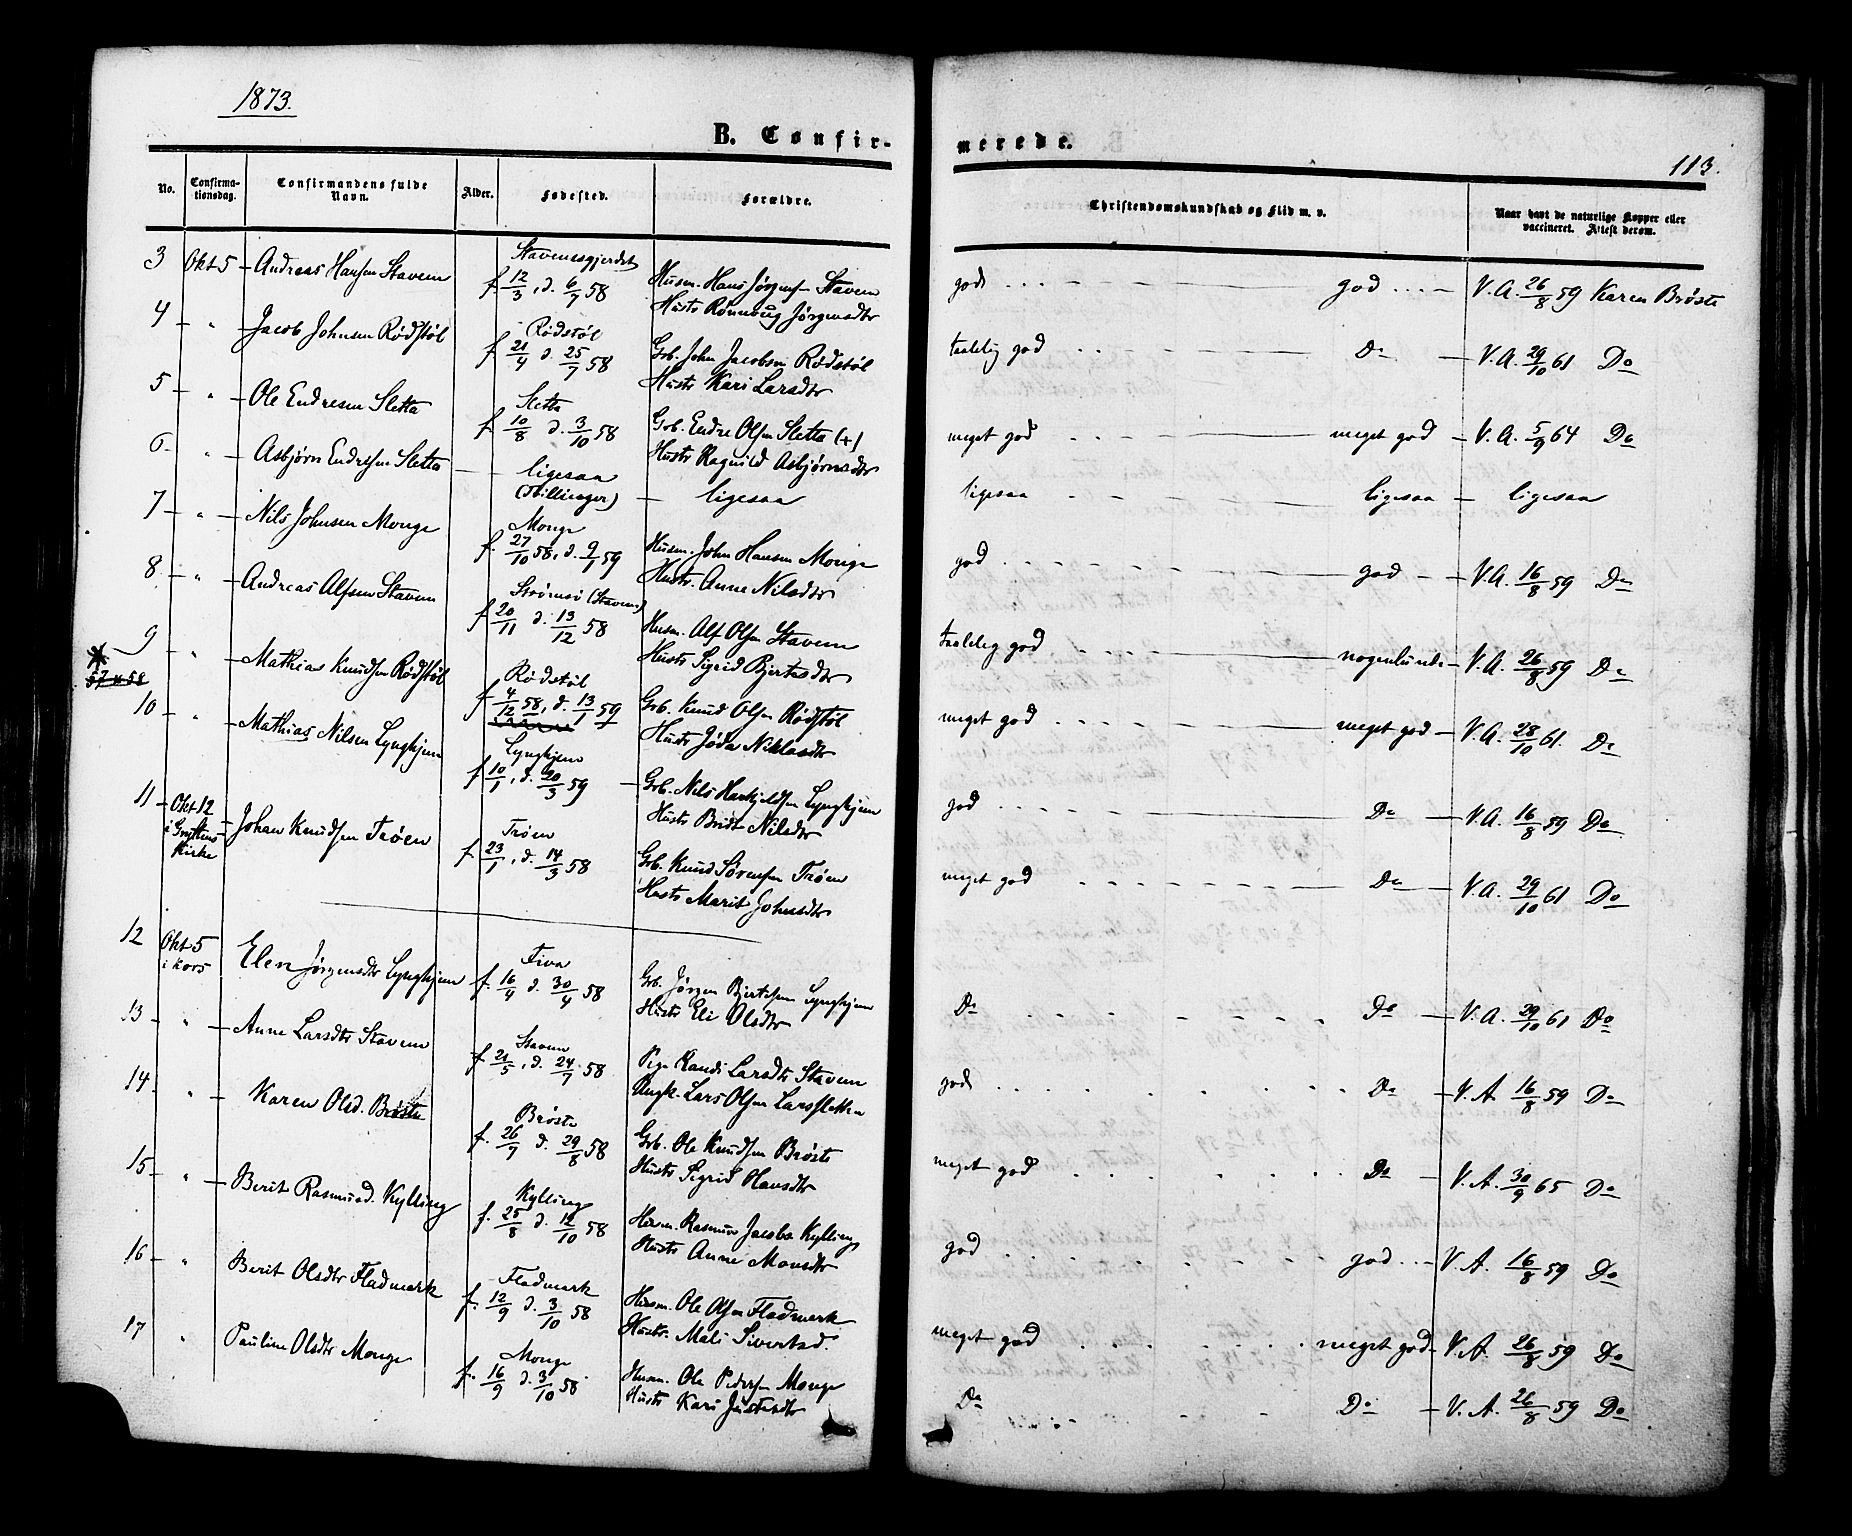 1873.
B. Confir-
merede.
113.
No.
Confirma-
tionsdag.
Confirmandens fulde
Navn.
Alder.
Fødested.
Forældre.
Christendomskundskab og Flid m. v.
Naar havt de naturlige Kopper eller
vaccineret. Attest derom.
3 Okt 5 Andreas Hansen Stavem Stavemsgjerdet
f. 12/3, d. 6/7 58 Husm. Hans Jørgens. Stavem
Hustr Rønnaug Jørgensdtr
god god V.A. 26/8 59 Karen Brøste
4 " Jacob Johnsen Rødstøl Rødstøl
f 21/4 d. 25/7 58 Grb. John Jacobsen Rødstøl
Hustr Kari Larsdtr
taalelig god Do V.A. 29/10 61 Do
5 " Ole Endresen Sletta Sletta
f. 10/8 d. 3/10 58 Grb. Endre Olsen Sletta (+)
Hustr Ragnild Asbjørnsdtr
meget god meget god V.A. 5/9 64 Do
6 " Asbjørn Endresen Sletta ligesaa
(Tvillinger) ligesaa
ligesaa ligesaa ligesaa
7 " Nils Johnsen Monge Monge
f. 27/10 58, d. 9/1 59 Husm. John Hansen Monge
Hustr. Anne Nilsdtr
god god V.A. 16/8 59 Do
8 " Andreas Alfsen Stavem Strømsø (Stavem)
f 20/11 d. 13/12 58 Husm. Alf Olsen Stavem
Hustr Sigrid Bjertesdtr
taalelig god nogenlunde V.A. 26/8 59 Do
9 " Mathias Knudsen Rødstøl Rødstøl
57 & 58
f 4/12 58, d. 13/1 59 Grb. Knud Olsen Rødstøl
Hustr Jøda Niklasdtr
meget god meget god V.A. 28/10 61. Do
10 " Mathias Nilsen Lynghjem Lynghjem
f. 10/1, d. 20/3 59 Grb. Nils Herkjelds. Lynghjem
Hustr Bridt Nilsdtr
god Do V.A. 16/8 59 Do
11 Okt 12
i Gryttens
Kirke
Johan Knudsen Trøen Trøen
f. 23/1, d. 14/3 58 Grb. Knud Sørensen Trøen
Hustr Marit Johnsdtr
meget god Do V.A. 29/10 61 Do
12 Okt 5
i Kors
Elen Jørgensdtr Lynghjem Fiva
f. 16/4 d. 30/4 58 Grb. Jørgen Bjertesen Lynghjem
Hustr Eli Olsdtr
Do Do V.A. 29/10 61 Do
13 " Anne Larsdtr Stavem Stavem
f 21/5, d. 24/7 58 Pige Randi Larsdtr Stavem
Ungk. Lars Olsen Larssletten
god Do V.A 16/8 59 Do
14 " Karen Olsd. Brøste Brøste
f. 26/7 d. 29/8 58 Grb. Ole Knudsen Brøste
Hustr Sigrid Hansdtr
meget god Do V.A. 30/9 65 Do
15 " Berit Rasmusd. Kylling Kylling
f. 25/8 d. 12/10 58 Husm. Rasmus Jacobs. Kylling
Hustr Anne Monsdtr
god god V.A. 16/8 59 Do
16 " Berit Olsdtr Fladmark Fladmark
f. 12/9 d. 3/10 58 Husm. Ole Olsen Fladmark
Hustr. Mali Sivertsd.
meget god meget god V.A. 26/8 59 Do
17 " Pauline Olsdtr Monge Monge
f. 16/9 d. 3/10 58 Husm. Ole Pedersen Monge
Hustr Kari Justesdtr
Do Do V.A. 26/8 59 Do